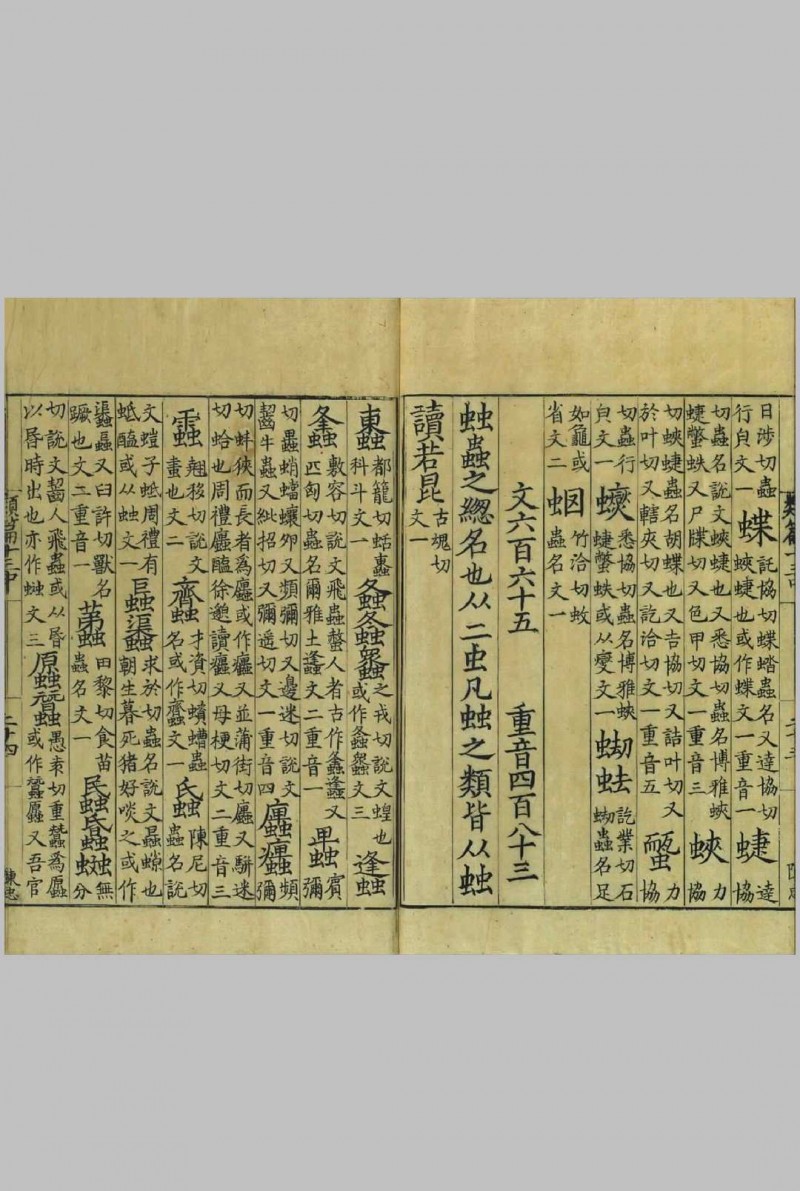 日涉切蟲行皃文一蝶託協切蝶蹹蟲名又達協切蛺蜨也或作蝶文一重音一蜨達協
切蟲名說文蛺蜨也又悉協切蟲名博雅蛺蜨蟞蛈又尺牒切又色甲切文一重音三蛺力協
切蛺蜨蟲名胡蝶也又吉協切又詰叶切又於叶切又轄夾切又訖洽切文一重音五力協
切蟲行皃文一悉協切蟲名博雅蛺蜨蟞蛈或从燮文一蜐䖦訖業切石蜐蟲名足
如龜或省文二竹洽切蚊蟲名文一
文六百六十五 重音四百八十三
䖵蟲之緫名也从二虫凡䖵之類皆从䖵
讀若昆古魂切文一
都籠切蛞蟗科斗文一之戎切說文蝗也或作文三蠭
敷容切說文飛蟲螫人者古作蠭又匹匈切蟲名爾雅土蠭文二重音一賓彌
切蟲蛸蟷蠰夘又頻彌切又邊迷切說文齧牛蟲又紕招切又彌遥切文一重音四頻彌
切蚌狹而長者為蠯或作又並蒲街切蠯又駢迷切蛤也周禮蠯醢徐邈讀又母梗切文二重音三
翹移切說文蚉也文二才資切蠐螬蟲名或作文一陳尼切蟲名說
文螘子蚳周禮有蚳醢或从䖵文一求於切蟲名說文也朝生暮死猪好啖之或作
又臼許切獸名蹶也文二重音一田黎切食苗蟲名文一無分
切說文齧人飛蟲或从昏以昏時出也亦作文三愚袁切重蠶爲或作又吾官